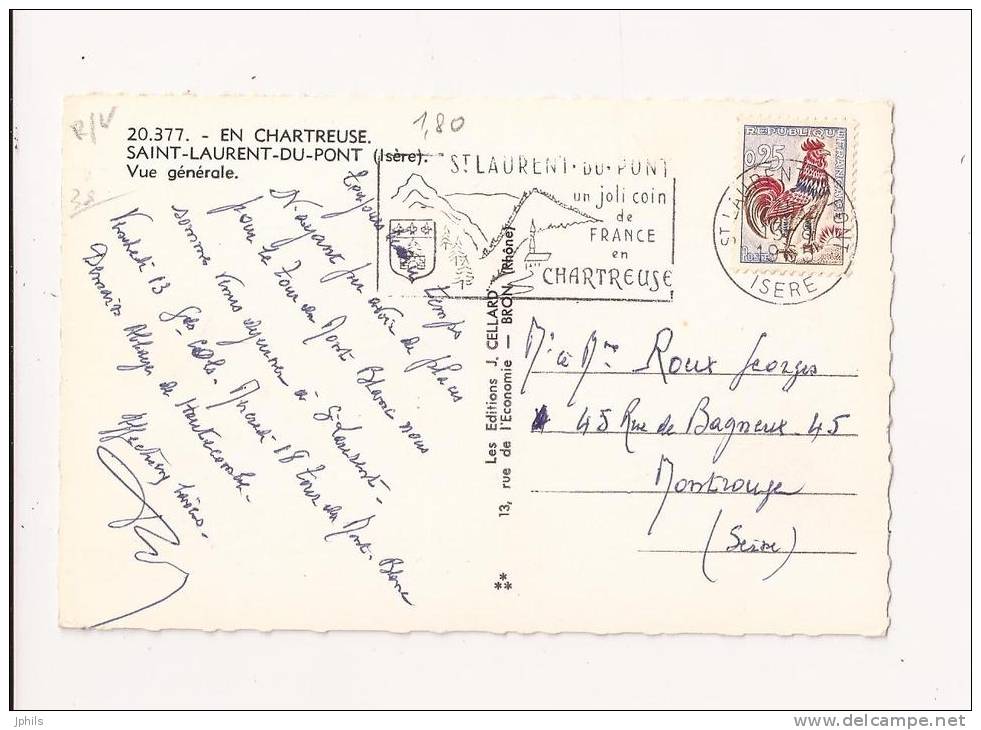 R/V
1,80
20.377. - EN CHARTREUSE.
SAINT-LAURENT-DU-PONT (Isère).
Vue générale.
38
ST LAURENT-DU-PONT
un joli coin
de
FRANCE
en
CHARTREUSE
REPUBLIQUE FRANÇAISE
0,25
Postes
ST LAURENT DU PONT
ISERE
toujours beau temps
N'ayant pu avoir de places
pour le tour du Mont Blanc nous
sommes venus séjourner à St Laurent.
Vendredi 13 Gds cols. Mercredi 18 tour du Mont-Blanc
Demain Abbaye de Hautecombe.
Affectueux baisers.
Les Editions J. CELLARD
13, rue de l'Economie - BRON (Rhône)
Mr et Mme Roux Georges
45 Rue de Bagneux 45
Montrouge
(Seine)
jphils
www.delcampe.net